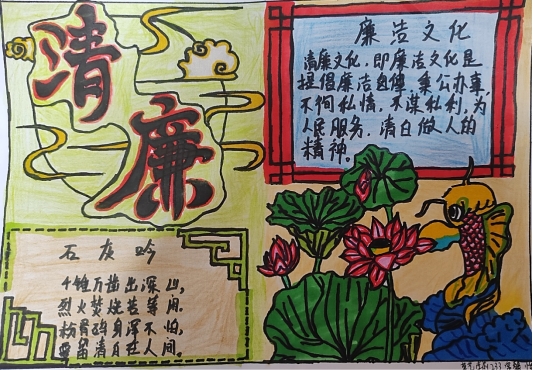 清
廉
廉洁文化
清廉文化,即廉洁文化是
提倡廉洁自律,秉公办事,
不徇私情,不谋私利,为
人民服务,清白做人的
精神。
石灰吟
千锤万凿出深山,
烈火焚烧若等闲.
粉骨碎身浑不怕,
要留清白在人间。